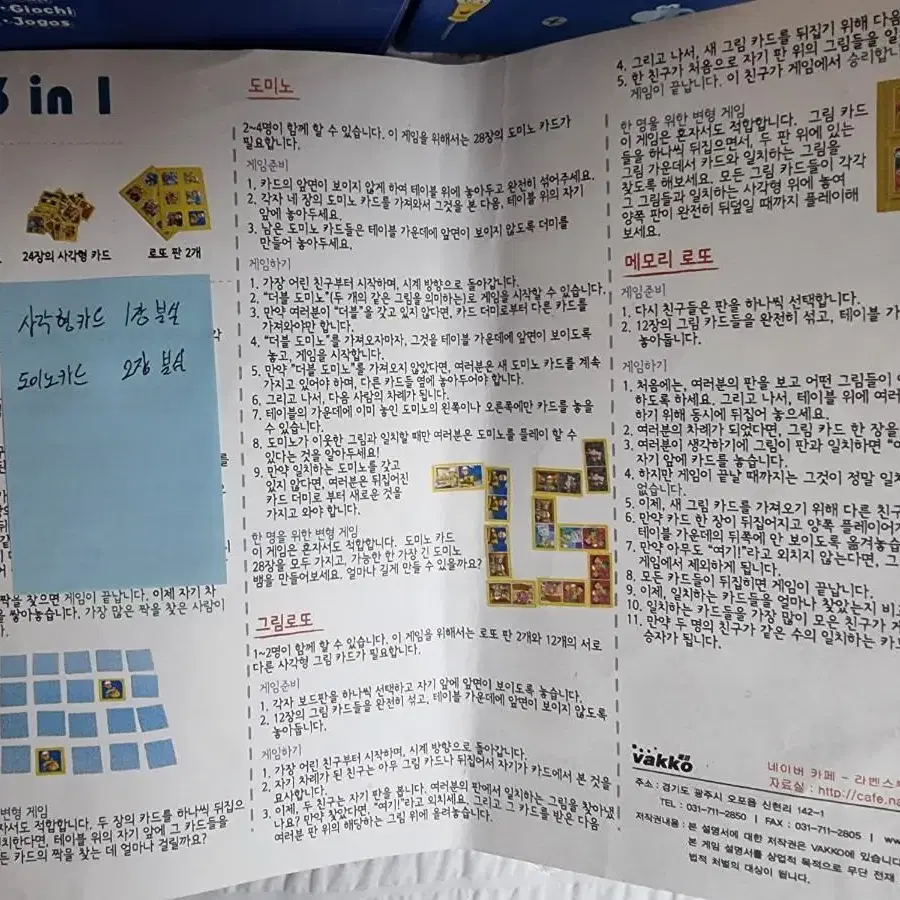 ·Giochi
·Jogos
in 1
24장의 사각형 카드
로또 판 2개
사각형카드 1장 분실
도미노카드 2장 분실
짝을 찾으면 게임이 끝납니다. 이제 자기 차
쌓아놓습니다. 가장 많은 짝을 찾은 사람이
변형 게임
자서도 적합합니다. 두 장의 카드를 하나씩 뒤집으
치한다면, 테이블 위의 자기 앞에 그 카드들을
든 카드의 짝을 찾는 데 얼마나 걸릴까요?
도미노
2~4명이 함께 할 수 있습니다. 이 게임을 위해서는 28장의 도미노 카드가
필요합니다.
게임준비
1. 카드의 앞면이 보이지 않게 하여 테이블 위에 놓아두고 완전히 섞어주세요.
2. 각자 네 장의 도미노 카드를 가져와서 그것을 본 다음, 테이블 위의 자기
앞에 놓아두세요.
3. 남은 도미노 카드들은 테이블 가운데에 앞면이 보이지 않도록 더미를
만들어 놓아두세요.
게임하기
1. 가장 어린 친구부터 시작하며, 시계 방향으로 돌아갑니다.
2. "더블 도미노"(두 개의 같은 그림을 의미하는)로 게임을 시작할 수 있습니다.
3. 만약 여러분이 "더블"을 갖고 있지 않다면, 카드 더미로부터 다른 카드를
가져와야만 합니다.
4. "더블 도미노"를 가져오자마자, 그것을 테이블 가운데에 앞면이 보이도록
놓고, 게임을 시작합니다.
5. 만약 "더블 도미노"를 가져오지 않았다면, 여러분은 새 도미노 카드를 계속
가지고 있어야 하며, 다른 카드들 옆에 놓아두어야 합니다.
6. 그리고 나서, 다음 사람의 차례가 됩니다.
7. 테이블의 가운데에 이미 놓인 도미노의 왼쪽이나 오른쪽에만 카드를 놓을
수 있습니다.
8. 도미노가 이웃한 그림과 일치할 때만 여러분은 도미노를 플레이 할 수
있다는 것을 알아두세요!
9. 만약 일치하는 도미노를 갖고
있지 않다면, 여러분은 뒤집어진
카드 더미로 부터 새로운 것을
가지고 와야 합니다.
한 명을 위한 변형 게임
이 게임은 혼자서도 적합합니다. 도미노 카드
28장을 모두 가지고, 가능한 한 가장 긴 도미노
뱀을 만들어보세요. 얼마나 길게 만들 수 있을까요?
그림로또
1~2명이 함께 할 수 있습니다. 이 게임을 위해서는 로또 판 2개와 12개의 서로
다른 사각형 그림 카드가 필요합니다.
게임준비
1. 각자 보드판을 하나씩 선택하고 자기 앞에 앞면이 보이도록 놓습니다.
2. 12장의 그림 카드들을 완전히 섞고, 테이블 가운데에 앞면이 보이지 않도록
놓아둡니다.
게임하기
1. 가장 어린 친구부터 시작하며, 시계 방향으로 돌아갑니다.
2. 자기 차례가 된 친구는 아무 그림 카드나 뒤집어서 자기가 카드에서 본 것을
묘사합니다.
3. 이제, 두 친구는 자기 판을 봅니다. 여러분의 판에서 일치하는 그림을 찾아냈
나요? 만약 찾았다면, "여기!"라고 외치세요. 그리고 그 카드를 받은 다음
여러분 판 위의 해당하는 그림 위에 올려놓습니다.
4. 그리고 나서, 새 그림 카드를 뒤집기 위해 다음
5. 한 친구가 처음으로 자기 판 위의 그림들을 일
게임이 끝납니다. 이 친구가 게임에서 승리합니
한 명을 위한 변형 게임
이 게임은 혼자서도 적합합니다. 그림 카드
들을 하나씩 뒤집으면서, 두 판 위에 있는
그림 가운데서 카드와 일치하는 그림을
찾도록 해보세요. 모든 그림 카드들이 각각
그 그림들과 일치하는 사각형 위에 놓여
양쪽 판이 완전히 뒤덮일 때까지 플레이해
보세요.
메모리 로또
게임준비
1. 다시 친구들은 판을 하나씩 선택합니다.
2. 12장의 그림 카드들을 완전히 섞고, 테이블 가
놓아둡니다.
게임하기
1. 처음에는, 여러분의 판을 보고 어떤 그림들이
하도록 하세요. 그리고 나서, 테이블 위에 여러
하기 위해 동시에 뒤집어 놓으세요.
2. 여러분의 차례가 되었다면, 그림 카드 한 장을
3. 여러분이 생각하기에 그림이 판과 일치하면 "여
자기 앞에 카드를 놓습니다.
4. 하지만 게임이 끝날 때까지는 그것이 정말 일치
없습니다.
5. 이제, 새 그림 카드를 가져오기 위해 다른 친구
6. 만약 카드 한 장이 뒤집어지고 양쪽 플레이어가
테이블 가운데의 뒤쪽에 안 보이도록 옮겨놓습
7. 만약 아무도 "여기!"라고 외치지 않는다면, 그
게임에서 제외하게 됩니다.
8. 모든 카드들이 뒤집히면 게임이 끝납니다.
9. 이제, 일치하는 카드들을 얼마나 찾았는지 비교
10. 일치하는 카드들을 가장 많이 모은 친구가 게
11. 만약 두 명의 친구가 같은 수의 일치하는 카드
승자가 됩니다.
vakko
네이버 카페 - 라벤스부
자료실 : http://cafe.na
주소 : 경기도 광주시 오포읍 신현리 142-1
TEL : 031-711-2850 | FAX : 031-711-2805 | ww
저작권내용 : 본 설명서에 대한 저작권은 VAKKO에 있습니다
본 게임 설명서를 상업적 목적으로 무단 전재
법적 처벌의 대상이 됩니다.